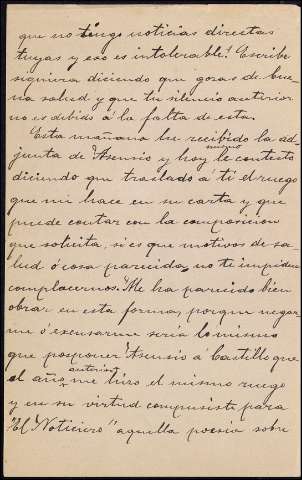 que no tengo noticias directas
tuyas y eso es intolerable! Escribe
siquiera diciendo que gozas de bue-
na salud y que tu silencio anterior
no es debido á la falta de esta.
Esta mañana he recibido la ad-
junta de Asensio y hoy mismo le contesto
diciendo que traslado á ti el ruego
que me hace en su carta y que
puede contar con la composicion
que solicita, si es que motivos de sa-
lud ó cosa parecida, no te impiden
complacernos. Me ha parecido bien
obrar en esta forma, porque negar-
me ó excusarme seria lo mismo
que posponer Asensio á Castillo que
el año anterior me hizo el mismo ruego
y en su virtud compusiste para
"El Noticiero" aquella poesia sobre